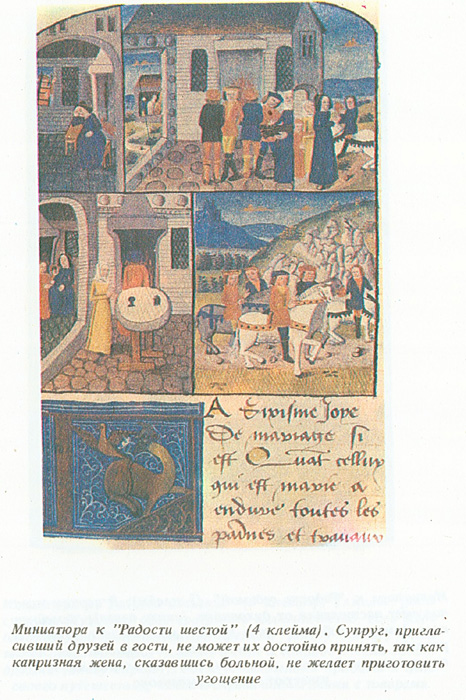 A Sixisme Joye
De mariage si
est Quāt celluy
qui est marie a
endure toutes les
paines et travaux
Миниатюра к "Радости шестой" (4 клейма). Супруг, пригла-
сивший друзей в гости, не может их достойно принять, так как
капризная жена, сказавшись больной, не желает приготовить
угощение